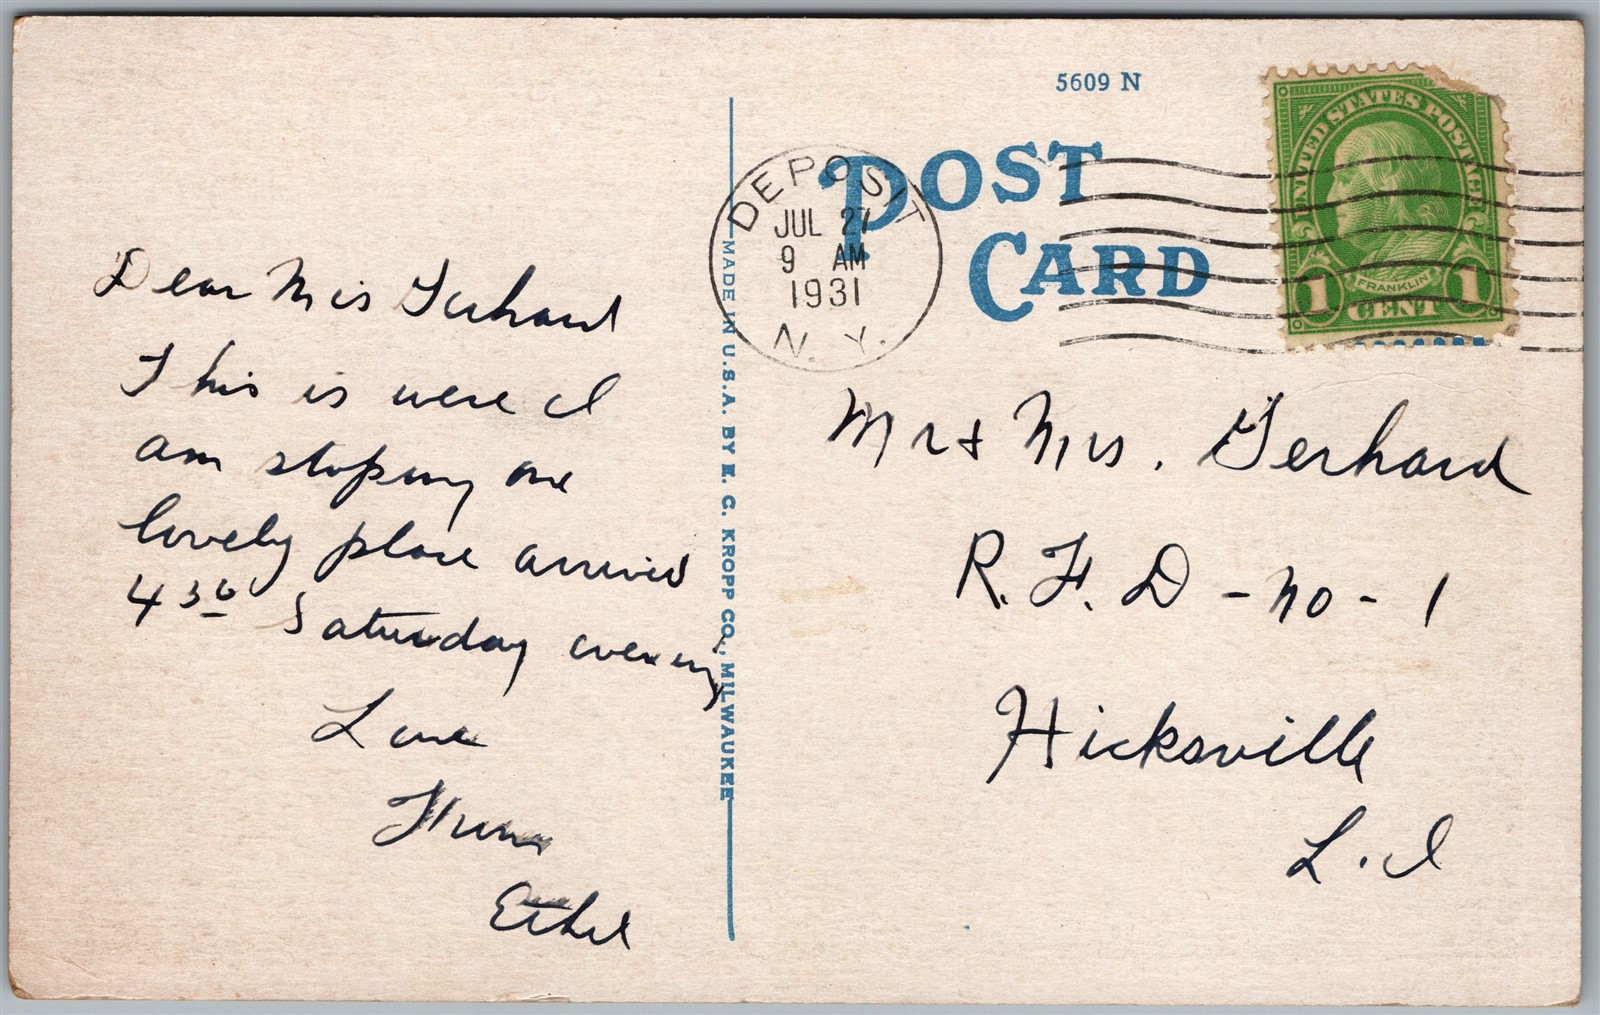 5609 N
POST
CARD
UNITED STATES POSTAGE
FRANKLIN
1 CENT 1
DEPOSIT
JUL 27
9 AM
1931
N. Y.
MADE IN U.S.A. BY E. C. KROPP CO., MILWAUKEE
Dear Mrs Gerhard
This is were I
am stoping one
lovely place arrived
4 30 Saturday evening
Love
From
Ethel
Mr & Mrs. Gerhard
R. F. D - no - 1
Hicksville
L. I